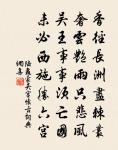 香徑長洲盡棘叢
奢雲豔雨只悲風
吳王事事須亡國
未必西施勝六宮
陸龜蒙吳宮懷古詞典
網集